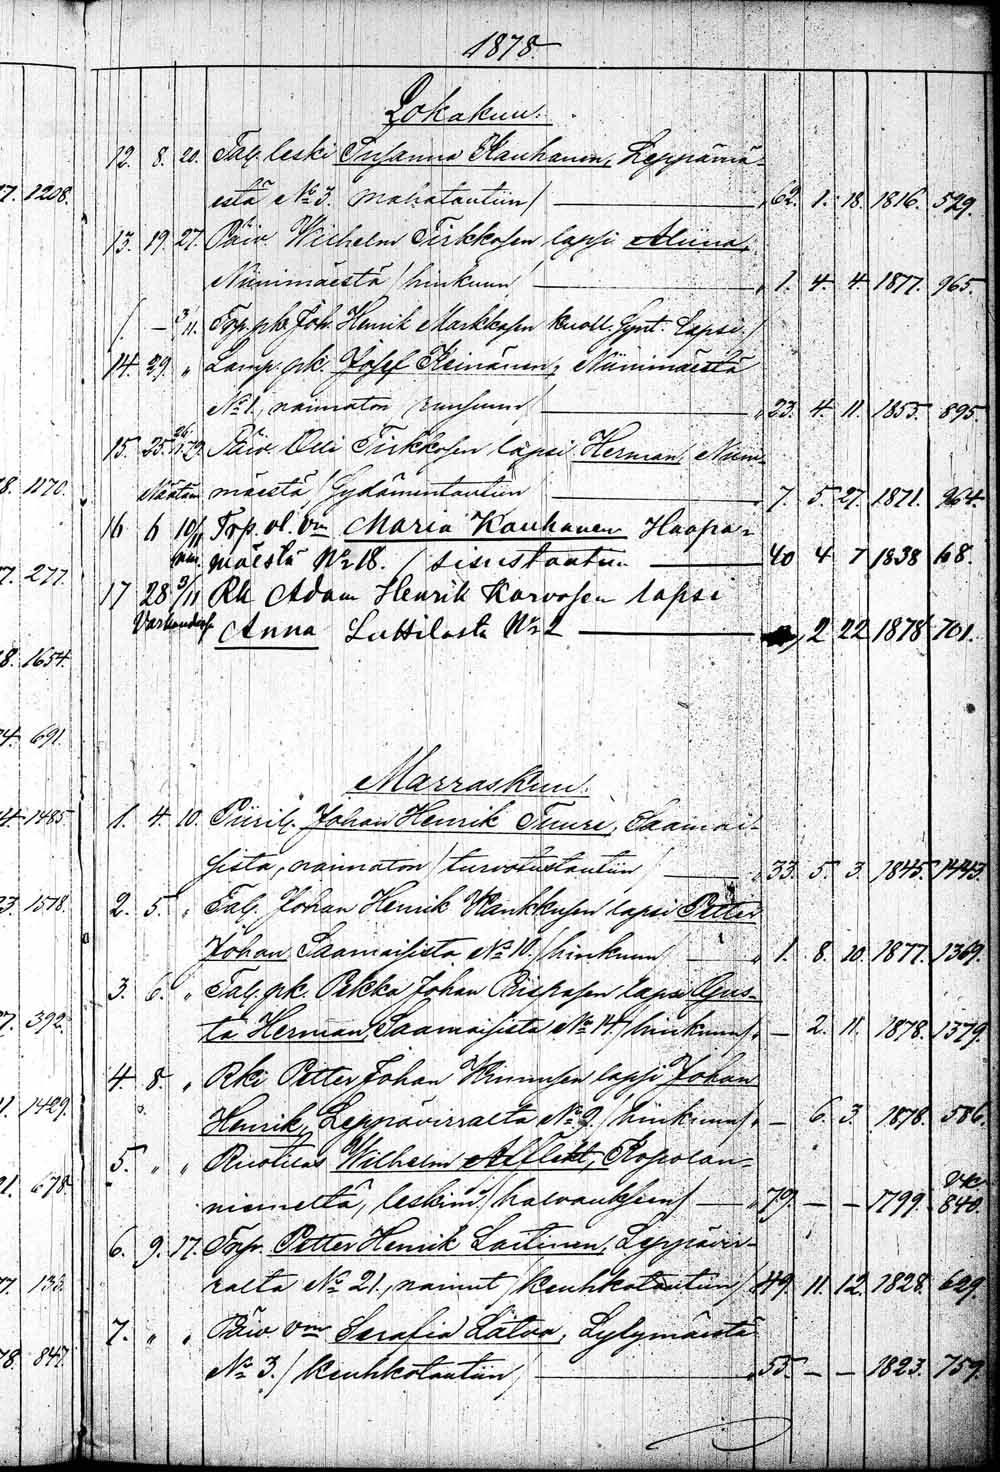 1878.
Lokakuun.
12. 8. 20. Tal. leski Susanna Kauhanen, Leppämä-
7. 1208. estä No 3. mahatautiin / 62. 1. 18. 1816. 529.
13. 19. 27. Päiv. Wilhelm Tirkkosen lapsi Alina,
Niinimäestä / hinkuun / 1. 4. 4. 1877. 965.
/ — 3/11. Torp. pk. Joh. Henrik Markkasen kuoll. synt. lapsi. /
14. 29. „ Lamp. pk. Josef Keinänen, Niinimäestä
No 1., naimaton / 23. 4. 11. 1855. 895.
15. 25. Päiv. Olli Tirkkosen lapsi Herman, Niini-
8. 1170. mäestä / Sydämentautiin 7. 5. 27. 1871. 964.
16 6 10/11 Torp. vl. vm Maria Kauhanen Haapa-
7. 277. mäestä No 18. / sisustautiin 40 4 7 1838 68.
17 28 9/11 Rk Adam Henrik Karvosen lapsi
Anna Luttilasta No 2 2 22 1878 701.
8. 1654.
4. 691.
Marraskuu.
4. 1485. 1. 4. 10. Piiril. Johan Henrik Tuure, Saamai-
sista, naimaton / turvotustautiin / 33. 5. 3. 1845. 1443.
3. 1578. 2. 5. „ Tal. Johan Henrik Wankkusen lapsi Petter
Johan Saamaisista No 10. / hinkuun / 1. 8. 10. 1877. 1369.
3. 6. „ Tal. pk. Pekka Johan Riispasen lapsi Gus-
7. 392. ta Herman, Saamaisista No 14. / hinkuun / — 2. 11. 1878. 1379.
4. 8. „ Rki Petter Johan lapsi Johan
1. 1429. Henrik, Leppävirralta No 9. / hinkuun / — 6. 3. 1878. 586.
5. „ „ Ruotilas Wilhelm Alflekt, Kopolan-
1. 678. niemeltä, leskim. / halvauksen / 79. — — 1799. 840.
6. 9. 17. Torp. Petter Henrik Laitinen, Leppävir-
7. 133. ralta No 21., nainut / keuhkotautiin / 49. 11. 12. 1828. 629.
7. „ „ Päiv vm Serafia Lätva, Lylymäestä
78. 847. No 3. / keuhkotautiin / 55. — — 1823. 759.